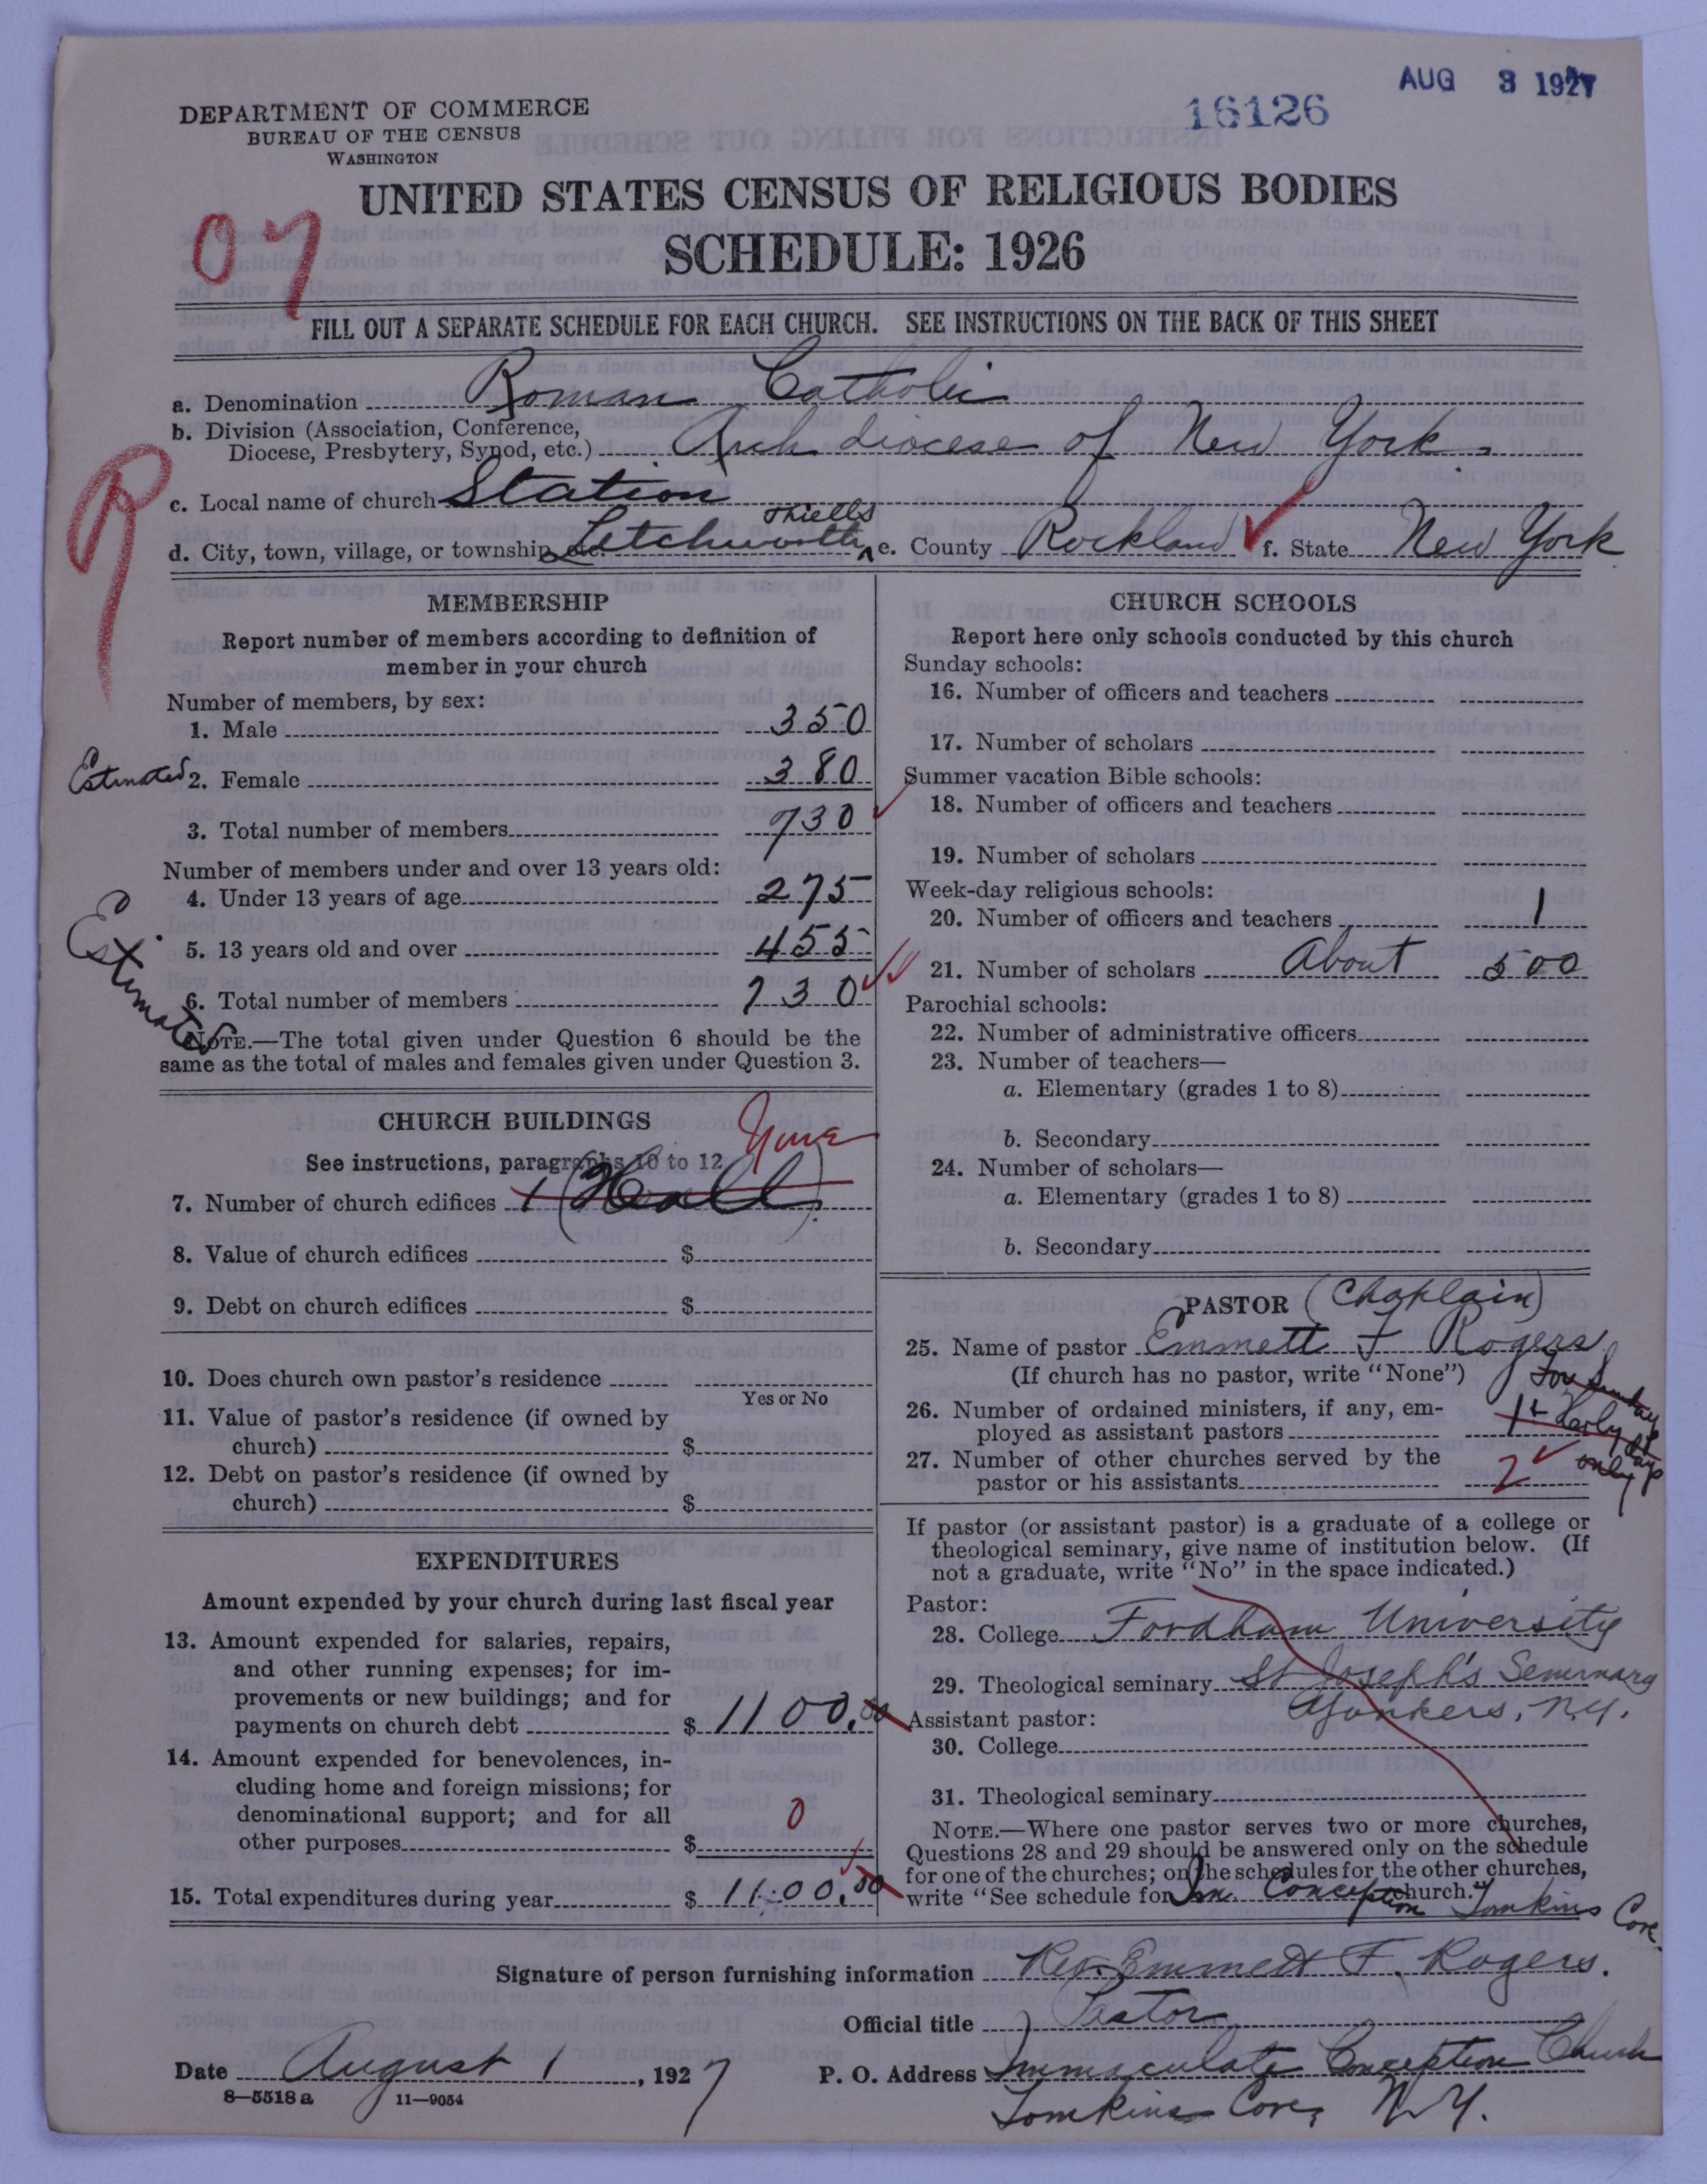 AUG 3 1927
16126
DEPARTMENT OF COMMERCE
BUREAU OF THE CENSUS
WASHINGTON
UNITED STATES CENSUS OF RELIGIOUS BODIES
SCHEDULE: 1926
07
FILL OUT A SEPARATE SCHEDULE FOR EACH CHURCH. SEE INSTRUCTIONS ON THE BACK OF THIS SHEET
a. Denomination Roman Catholic
b. Division (Association, Conference,
Diocese, Presbytery, Synod, etc.) Arch diocese of New York.
R
c. Local name of church Station
Thiells
d. City, town, village, or township, etc. Letchworth e. County Rockland ✓ f. State New York
MEMBERSHIP
Report number of members according to definition of
member in your church
Number of members, by sex:
1. Male 350
Estimated 2. Female 380
3. Total number of members 730 ✓
Number of members under and over 13 years old:
4. Under 13 years of age 275
Estimated
5. 13 years old and over 455
6. Total number of members 730 ✓✓
NOTE.—The total given under Question 6 should be the
same as the total of males and females given under Question 3.
CHURCH BUILDINGS
None
See instructions, paragraphs 10 to 12
7. Number of church edifices 1 (Hall)
8. Value of church edifices $
9. Debt on church edifices $
10. Does church own pastor's residence
Yes or No
11. Value of pastor's residence (if owned by
church) $
12. Debt on pastor's residence (if owned by
church) $
EXPENDITURES
Amount expended by your church during last fiscal year
13. Amount expended for salaries, repairs,
and other running expenses; for im-
provements or new buildings; and for
payments on church debt $ 1100.00
14. Amount expended for benevolences, in-
cluding home and foreign missions; for
denominational support; and for all
other purposes $ 0
15. Total expenditures during year $ 1100.00
CHURCH SCHOOLS
Report here only schools conducted by this church
Sunday schools:
16. Number of officers and teachers
17. Number of scholars
Summer vacation Bible schools:
18. Number of officers and teachers
19. Number of scholars
Week-day religious schools:
20. Number of officers and teachers 1
21. Number of scholars About 500
Parochial schools:
22. Number of administrative officers
23. Number of teachers—
a. Elementary (grades 1 to 8)
b. Secondary
24. Number of scholars—
a. Elementary (grades 1 to 8)
b. Secondary
PASTOR (Chaplain)
25. Name of pastor Emmett F Rogers
(If church has no pastor, write "None") For Sunday
26. Number of ordained ministers, if any, em-
ployed as assistant pastors 1 + Holy days only
27. Number of other churches served by the
pastor or his assistants 2 ✓
If pastor (or assistant pastor) is a graduate of a college or
theological seminary, give name of institution below. (If
not a graduate, write "No" in the space indicated.)
Pastor:
28. College Fordham University
29. Theological seminary St Joseph's Seminary
Yonkers, N.Y.
Assistant pastor:
30. College
31. Theological seminary
NOTE.—Where one pastor serves two or more churches,
Questions 28 and 29 should be answered only on the schedule
for one of the churches; on the schedules for the other churches,
write "See schedule for Im. Conception church." Tomkins Cove
Signature of person furnishing information Rev. Emmett F. Rogers.
Official title Pastor
Date August 1, 1927
P. O. Address Immaculate Conception Church
Tomkins Cove, N.Y.
8—5518 a 11—9054